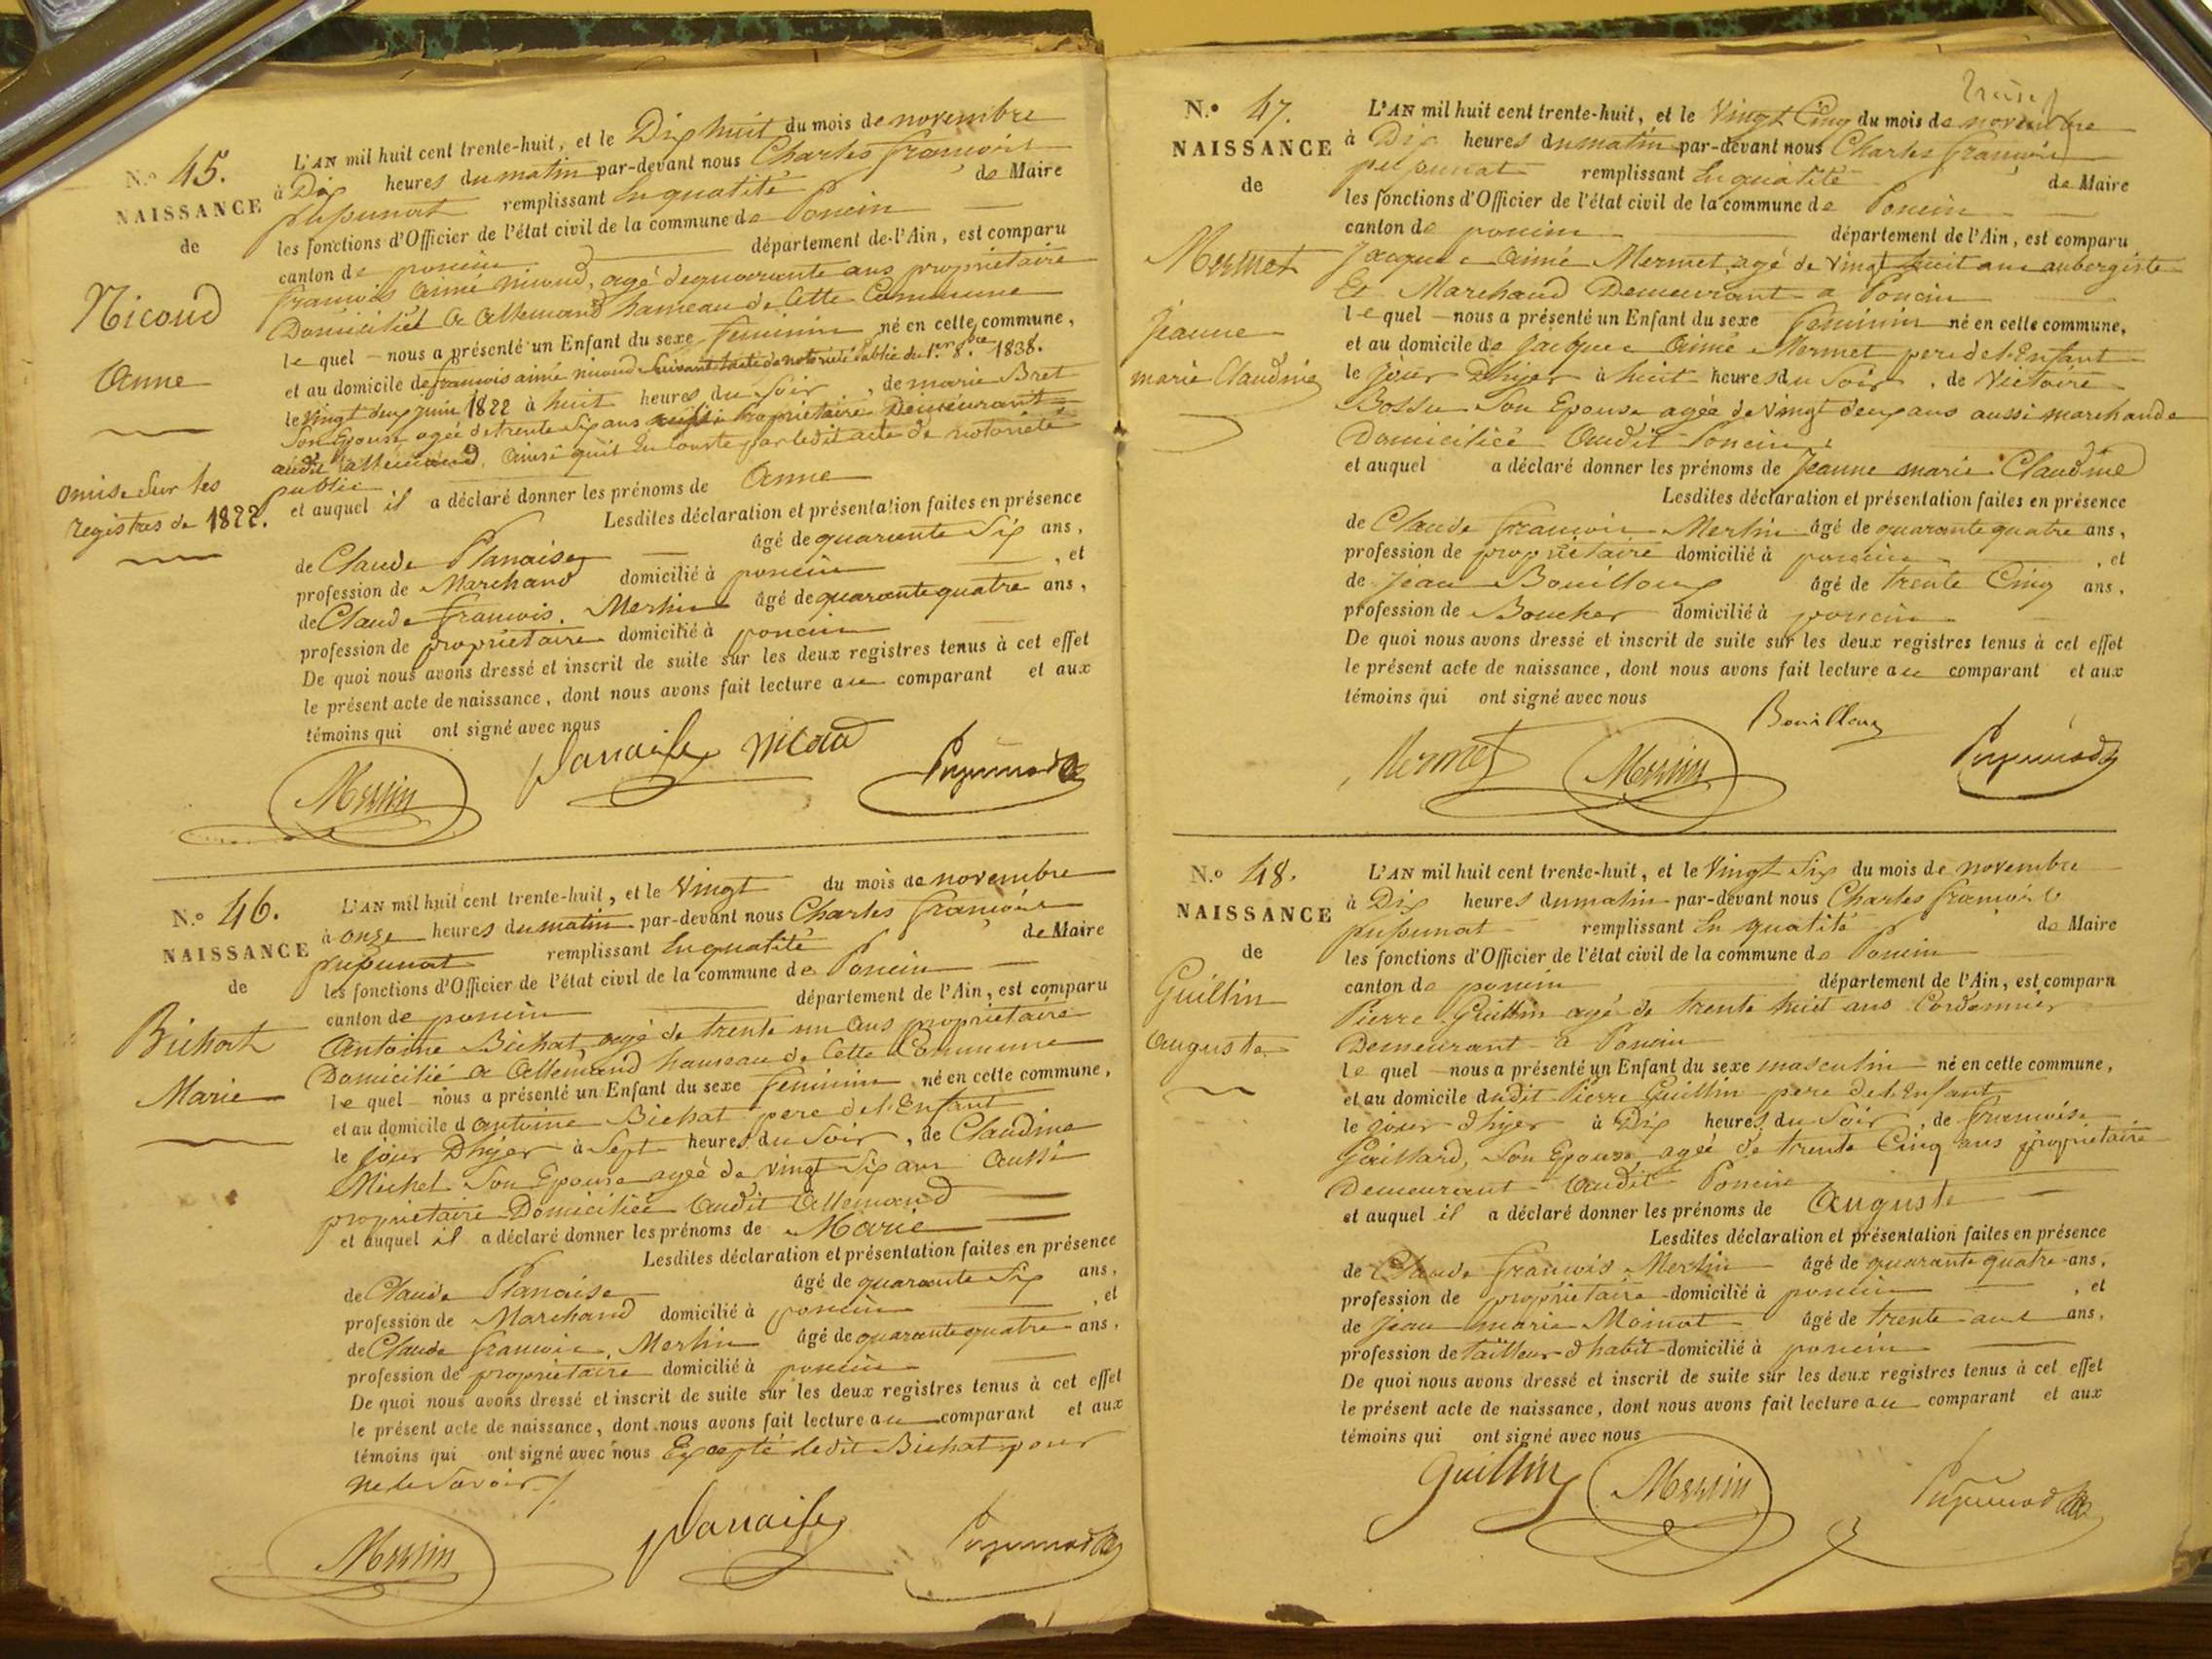 N.º 45.
NAISSANCE
de
Nicoud
Anne
omise sur les
registres de 1822.
L'AN mil huit cent trente-huit, et le Dix huit du mois de novembre
à Dix heures du matin par-devant nous Charles françois
pupunat remplissant En qualité de Maire
les fonctions d'Officier de l'état civil de la commune de Poncin
canton de poncin département de l'Ain, est comparu
françois aimé nicoud, agé de quarante ans propriétaire
Domicilié a allemand hameau de Cette Commune
le quel nous a présenté un Enfant du sexe feminin né en cette commune,
et au domicile de francois aimé nicoud suivant l'acte de notorieté publié du 1.er 8.bre 1838.
le vingt deux juin 1822 à huit heures du soir, de marie Bret
son Epouse, agée de trente six ans aussi propriétaire Demeurant
audit allemand. ainsi qu'il En conste par ledit acte de notorieté
public
et auquel il a déclaré donner les prénoms de Anne
Lesdites déclaration et présentation faites en présence
de Claude Planaise âgé de quarante six ans,
profession de Marchand domicilié à poncin, et
de Claude françois Merlin âgé de quarante quatre ans,
profession de propriétaire domicilié à poncin
De quoi nous avons dressé et inscrit de suite sur les deux registres tenus à cet effet
le présent acte de naissance, dont nous avons fait lecture au comparant et aux
témoins qui ont signé avec nous
Merlin Planaise nicoud Pupunat
N.º 46.
NAISSANCE
de
Bichat
Marie
L'AN mil huit cent trente-huit, et le Vingt du mois de novembre
à onze heures du matin par-devant nous Charles françois
pupunat remplissant En qualité de Maire
les fonctions d'Officier de l'état civil de la commune de Poncin
canton de poncin département de l'Ain, est comparu
Antoine Bichat agé de trente un ans propriétaire
Domicilié a allemand hameau de Cette Commune
le quel nous a présenté un Enfant du sexe feminin né en cette commune,
et au domicile d antoine Bichat pere de l'Enfant
le jour D'hyer à sept heures du soir, de Claudine
Michel son Epouse agée de vingt six ans aussi
propriétaire Domiciliée audit allemand
et auquel il a déclaré donner les prénoms de Marie
Lesdites déclaration et présentation faites en présence
de Claude Planaise âgé de quarante six ans,
profession de Marchand domicilié à poncin, et
de Claude françois Merlin âgé de quarante quatre ans,
profession de propriétaire domicilié à poncin
De quoi nous avons dressé et inscrit de suite sur les deux registres tenus à cet effet
le présent acte de naissance, dont nous avons fait lecture au comparant et aux
témoins qui ont signé avec nous Excepté ledit Bichat pour
ne le savoir./.
Merlin Planaise Pupunat
N.º 47.
NAISSANCE
de
Mermet
Jeanne
marie Claudine
L'AN mil huit cent trente-huit, et le Vingt Cinq du mois de novembre
à Dix heures du matin par-devant nous Charles françois
pupunat remplissant En qualité de Maire
les fonctions d'Officier de l'état civil de la commune de Poncin
canton de poncin département de l'Ain, est comparu
Jacques aimé Mermet, agé de vingt huit ans aubergiste
Et Marchand Demeurant a Poncin
le quel nous a présenté un Enfant du sexe feminin né en cette commune,
et au domicile de jacques aimé Mermet pere de l'Enfant
le jour D'hyer à huit heures du soir, de Victoire
Bossu son Epouse agée de vingt deux ans aussi marchande
Domiciliée audit Poncin
et auquel a déclaré donner les prénoms de Jeanne marie Claudine
Lesdites déclaration et présentation faites en présence
de Claude françois Merlin âgé de quarante quatre ans,
profession de propriétaire domicilié à poncin, et
de Jean Bouilloux âgé de trente Cinq ans,
profession de Boucher domicilié à poncin
De quoi nous avons dressé et inscrit de suite sur les deux registres tenus à cet effet
le présent acte de naissance, dont nous avons fait lecture au comparant et aux
témoins qui ont signé avec nous
Bouilloux
Mermet Merlin Pupunat
N.º 48.
NAISSANCE
de
Guillin
auguste
L'AN mil huit cent trente-huit, et le Vingt six du mois de novembre
à Dix heures du matin par-devant nous Charles françois
pupunat remplissant En qualité de Maire
les fonctions d'Officier de l'état civil de la commune de Poncin
canton de poncin département de l'Ain, est comparu
Pierre Guillin agé de trente huit ans Cordonnier
Demeurant a Poncin
le quel nous a présenté un Enfant du sexe masculin né en cette commune,
et au domicile dudit Pierre Guillin pere de l'Enfant
le jour d'hyer à Dix heures du soir, de françoise
Gaillard, son Epouse agée de trente Cinq ans propriétaire
Demeurant audit Poncin
et auquel il a déclaré donner les prénoms de Auguste
Lesdites déclaration et présentation faites en présence
de Claude françois Merlin âgé de quarante quatre ans,
profession de propriétaire domicilié à poncin, et
de Jean marie Moinat âgé de trente ans ans,
profession de tailleur d'habit domicilié à poncin
De quoi nous avons dressé et inscrit de suite sur les deux registres tenus à cet effet
le présent acte de naissance, dont nous avons fait lecture au comparant et aux
témoins qui ont signé avec nous
Guillin Merlin Pupunat